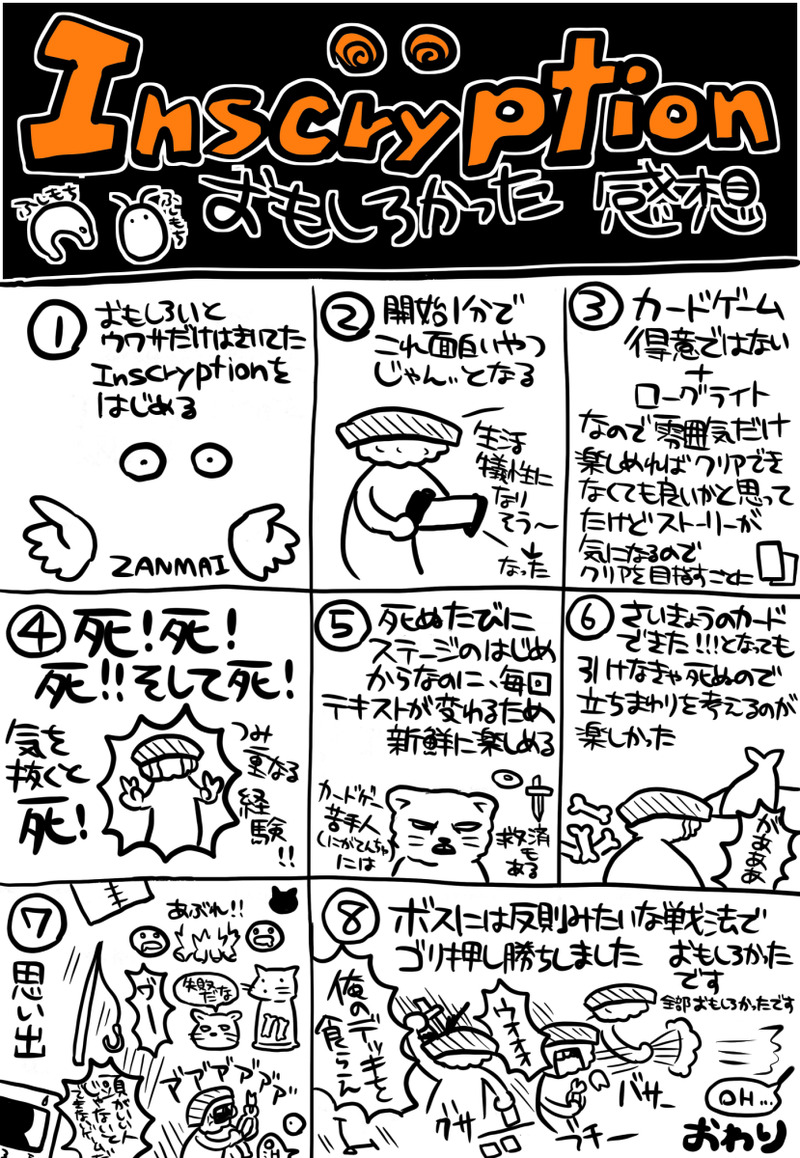 Inscryption
おもしろかった 感想
ふじもち
ふじもち
① おもしろいと
ウワサだけはきいてた
Inscryptionを
はじめる
ZANMAI
② 開始1分で
これ面白いやつ
じゃん‥となる
生活
犠牲に
なり
そう〜
なった
③ カードゲーム
得意ではない
+
ローグライト
なので雰囲気だけ
楽しめればクリアでき
なくても良いかと思って
たけどストーリーが
気になるので
クリアを目指すことに
④ 死!死!
死!!そして死!
気を
抜くと
死!
つみ
重なる
経験!!
⑤ 死ぬたびに
ステージのはじめ
からなのに、毎回
テキストが変わるため
新鮮に楽しめる
カードゲー
苦手人
(にがてんちゅ)
には
救済も
ある
⑥ さいきょうのカード
できた!!!となっても
引けなきゃ死ぬので
立ちまわりを考えるのが
楽しかった
があああ
⑦ 思い出
あぶれ!!
ヴー
失敬
だな
アアアアアア
⑧ ボスには反則みたいな戦法で
ゴリ押し勝ちしました おもしろかった
です
全部おもしろかったです
俺の
デッキを
食らえ
ウオオオ
グサ
ブチー
バサー
OH...
おわり